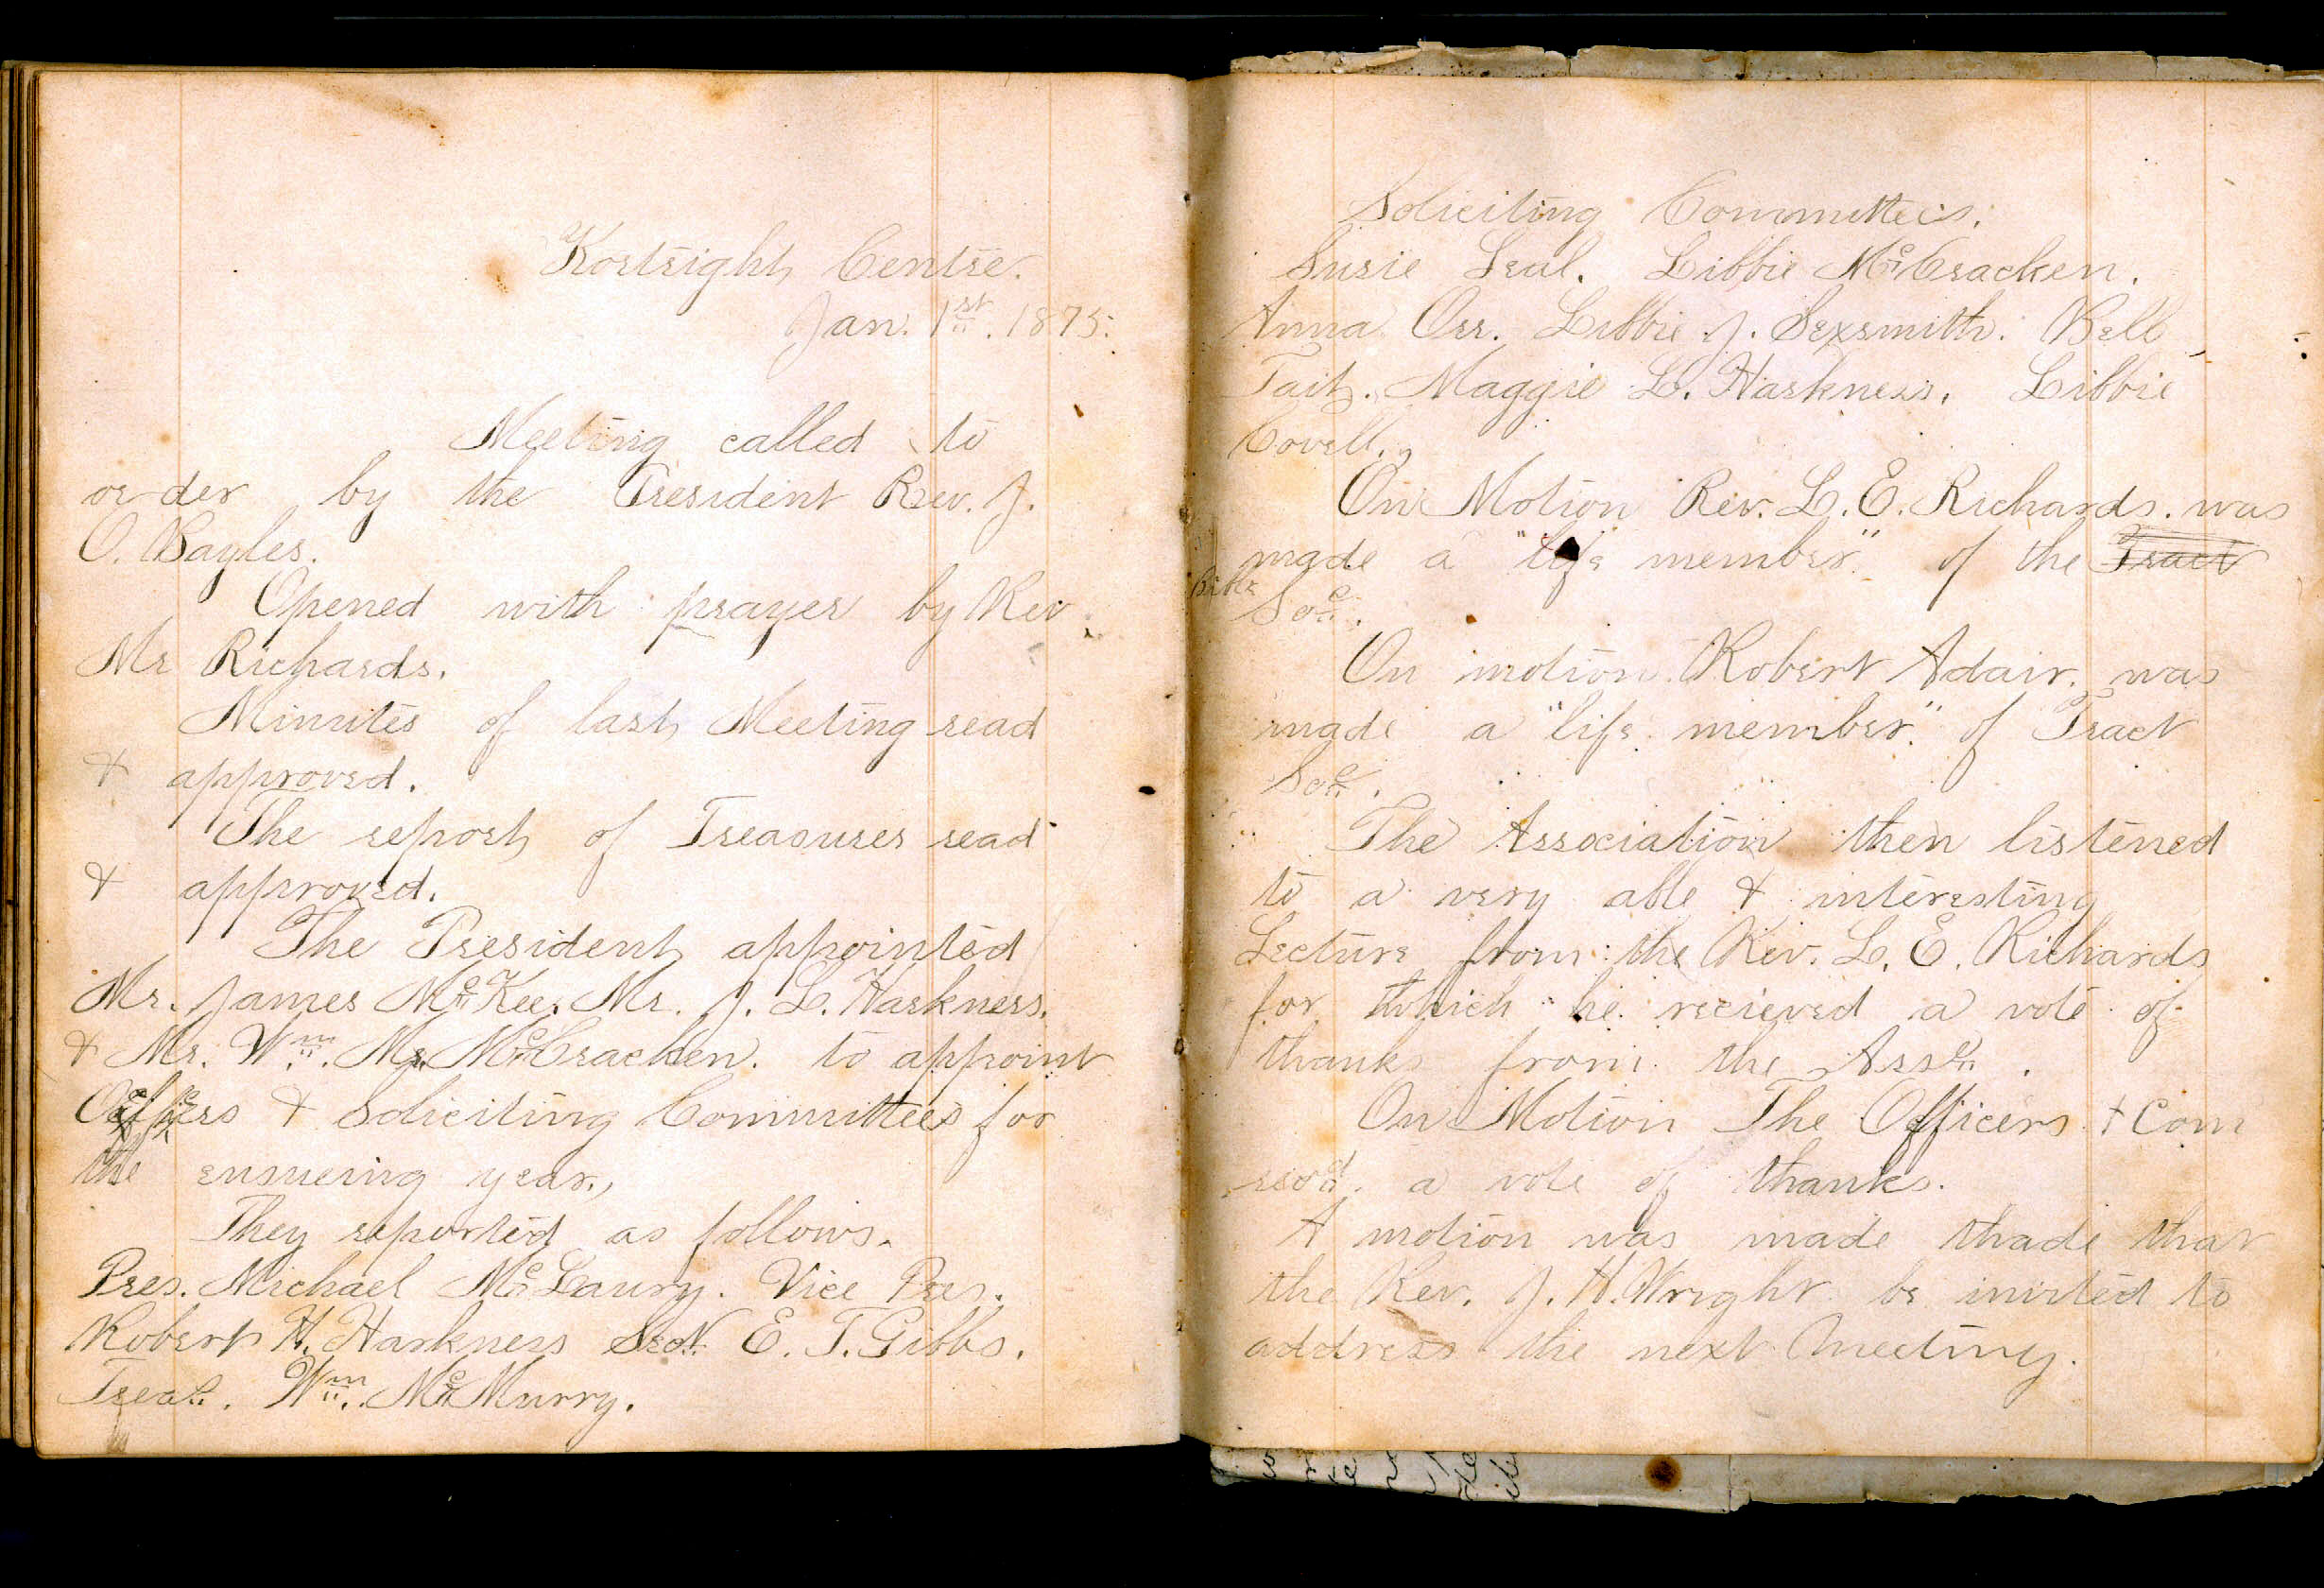 Kortright Centre.
Jan. 1st. 1875.
Meeting called to
order by the President Rev. J.
O. Bayles.
Opened with prayer by Rev.
Mr Richards.
Minutes of last Meeting read
& approved.
The report of Treasurer read
& approved.
The President appointed
Mr. James McKee. Mr. J. L. Harkness.
& Mr. Wm. Mc. McCracken. to appoint
Officers & Soliciting Committees for
the ensueing year.,
They reported as follows.
Pres. Michael McLaury. Vice Pres.
Robert H. Harkness Secy. E. T. Gibbs.
Treas. Wm. McMurry.
Soliciting Committees.
Susie Leal. Libbie McCracken.
Anna Orr. Libbie J. Sexsmith. Bell
Tait. Maggie L. Harkness, Libbie
Covell.,
On Motion Rev. L. E. Richards. was
made a "life member." of the Tract
Bible Soc.
On motion Robert Adair. was
made a "life member." of Tract
Soc.
The Association then listened
to a very able & interesting
Lecture from the Rev. L. E. Richards
for which he recieved a vote of
thanks from the Assn.
On Motion The Officers & Com
recd. a vote of thanks.
A motion was made thade that
the Rev. J. H. Wright be invited to
address the next Meeting.